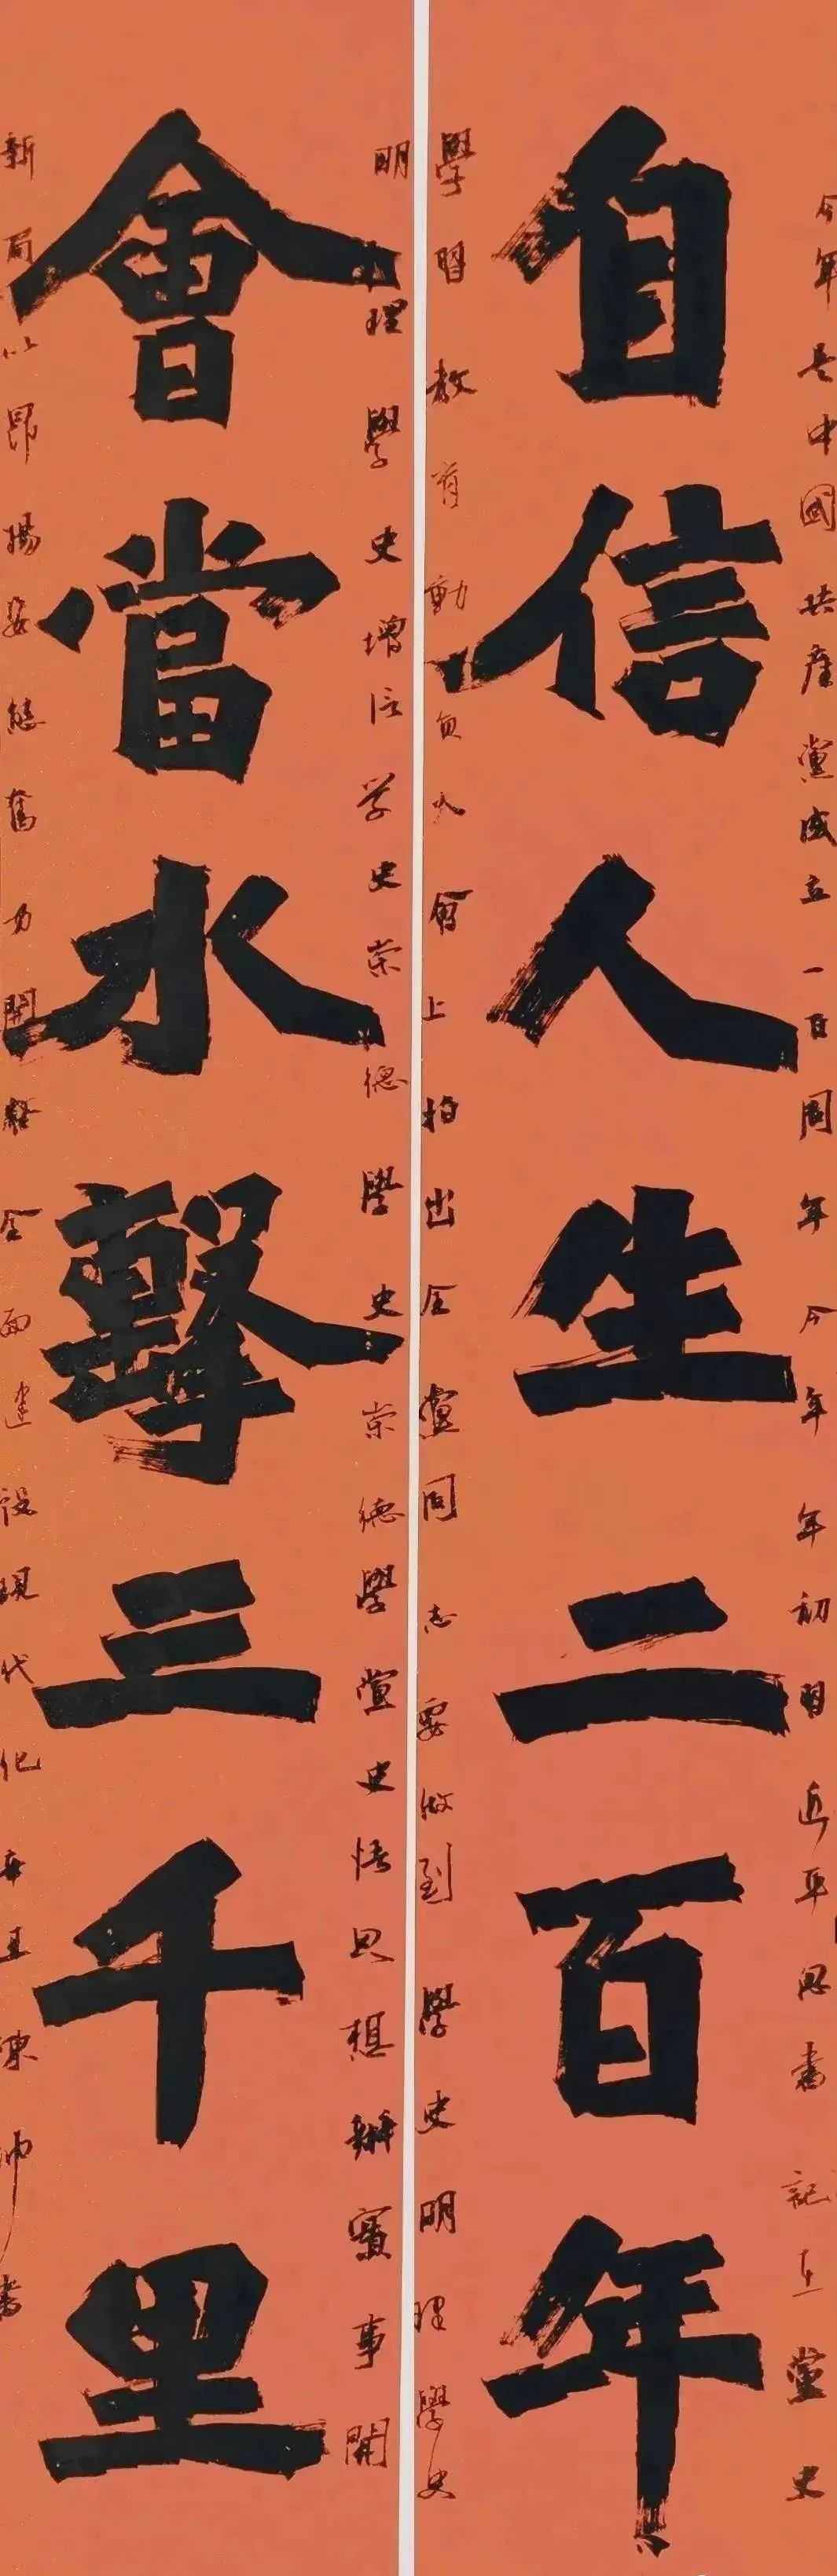 自信人生二百年
會當水擊三千里
今年是中國共產黨成立一百周年今年年初習近平總書記在黨史
學習教育動員大會上指出全黨同志要做到學史明理學史
明理學史增信學史崇德學史崇德學黨史悟思想辦實事開
新局以昂揚姿態奮力開啓全面建設現代化